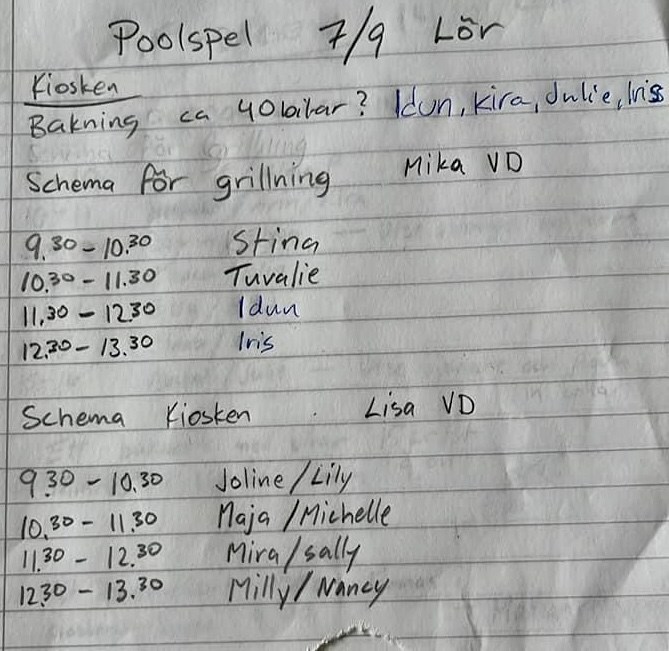 Poolspel 7/9 Lör
Kiosken
Bakning ca 40 bitar? Idun, Kira, Julie, Iris
Schema för grillning Mika VD
9.30 - 10.30 Stina
10.30 - 11.30 Tuvalie
11.30 - 12.30 Idun
12.30 - 13.30 Iris
Schema Kiosken Lisa VD
9.30 - 10.30 Joline/Lily
10.30 - 11.30 Maja/Michelle
11.30 - 12.30 Mira/Sally
12.30 - 13.30 Milly/Nancy